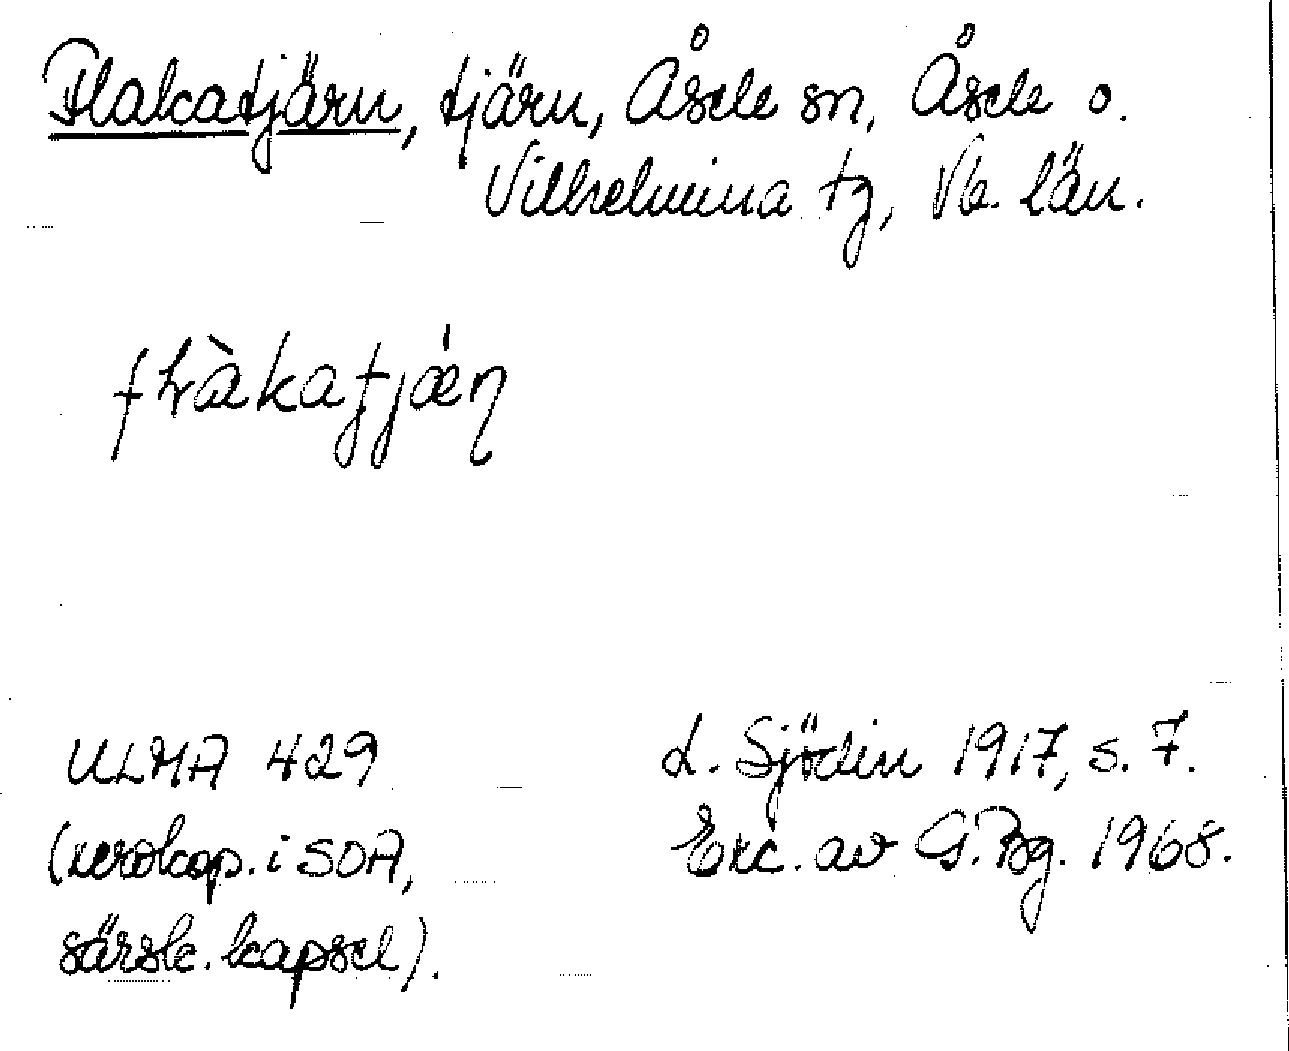 Flakatjärn, tjärn, Åsele sn, Åsele o.
Vilhelmina tg, Vb. län.
fḷàkatjǽṇ
ULMA 429
(xerokop. i SOA,
särsk. kapsel).
L. Sjödin 1917, s. 7.
Exc. av G. Bg. 1968.